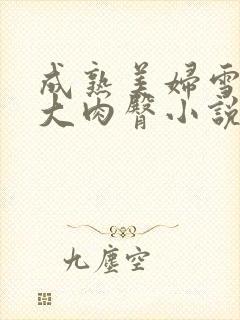 成熟美婦雪
大肉臀小說
九塵空